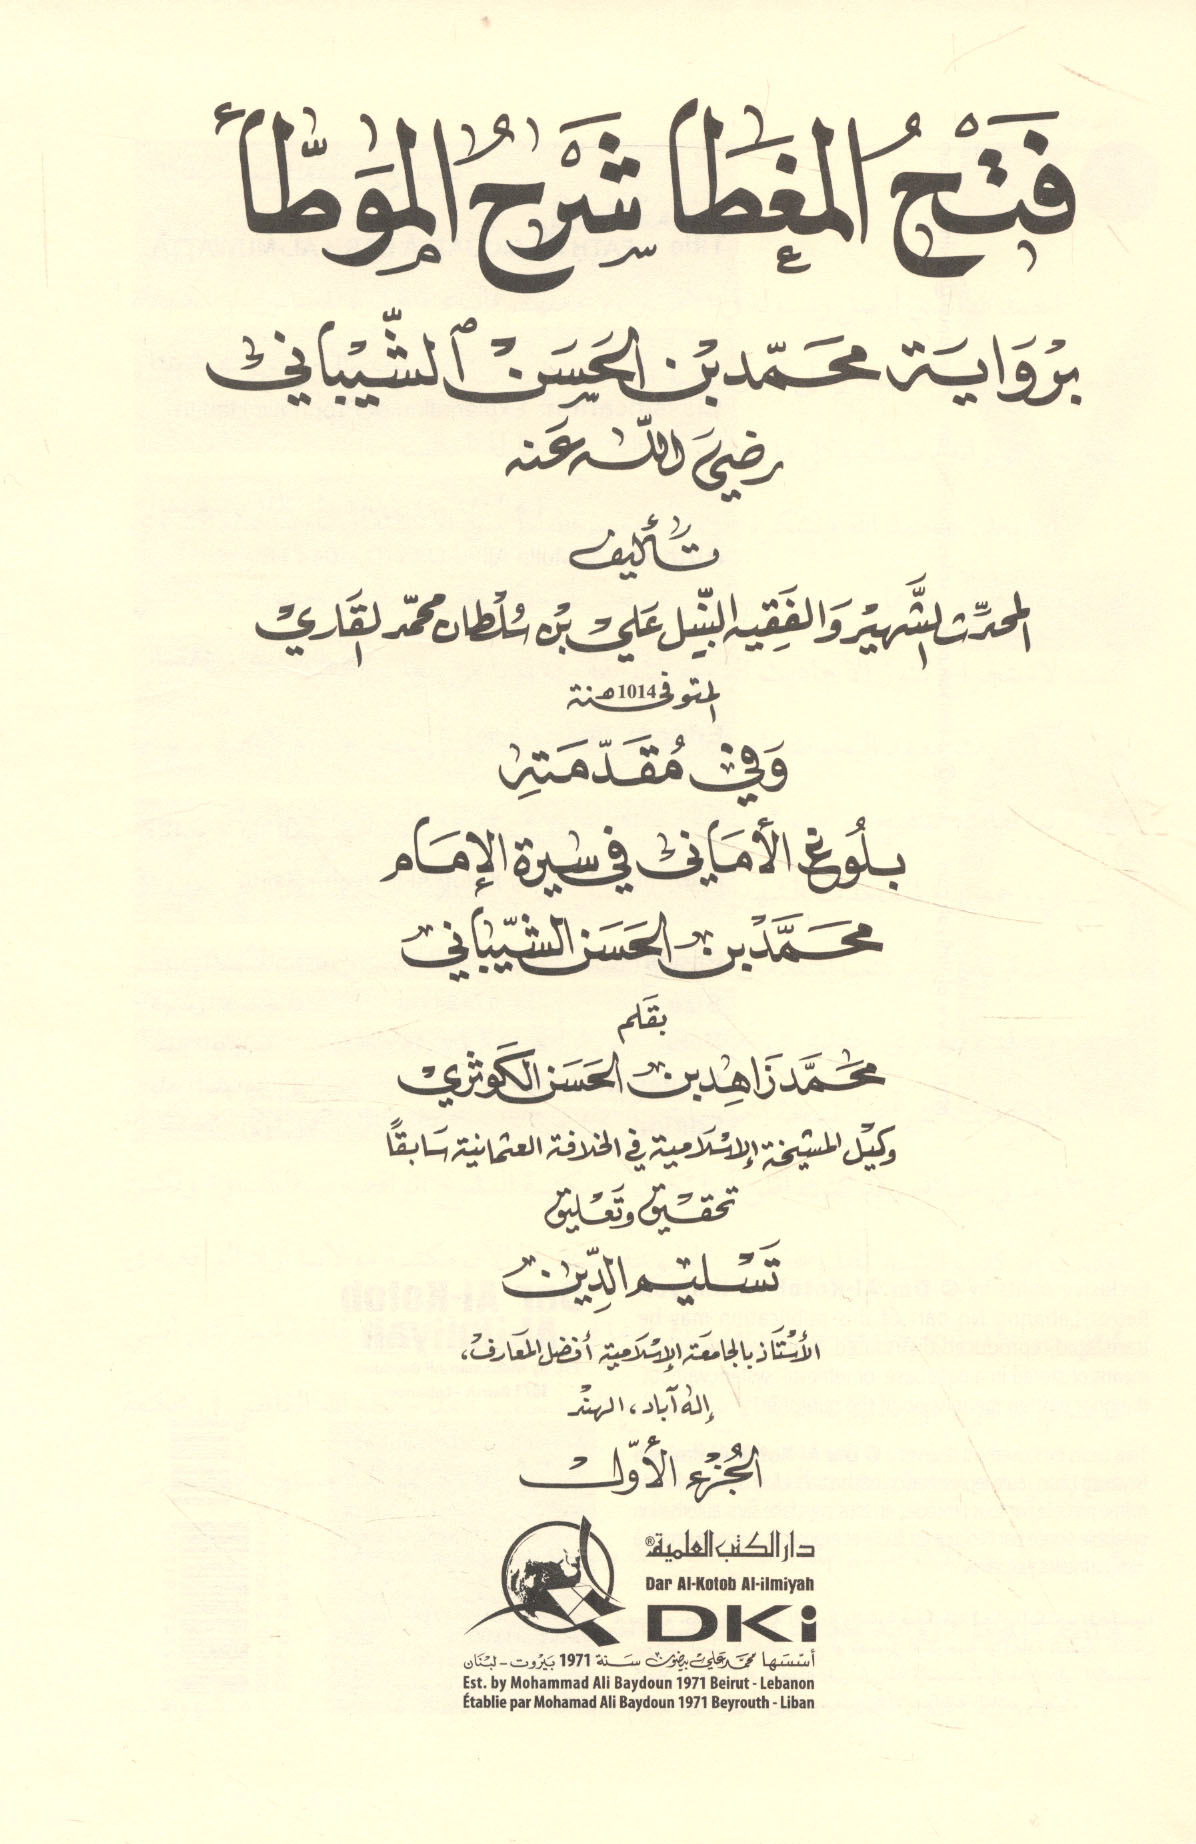 فَتْحُ المُغَطَّا شَرْحُ المُوَطَّأ
بِرْوَايَة محَمّد بْن الحَسَنْ الشَّيْبَاني
رضيَ اللّه عَنه
تأليف
المحدِّث الشَّهيْر وَالفَقِيه النَّبِيل عَلي بْن سُلْطان محمّد القَاري
المتوفى سنة 1014هـ
وَفي مُقَدّمَتِهِ
بلُوغ الأمَاني في سيرة الإمَام
محَمَّد بن الحَسَن الشّيبَاني
بقَلم
محَمَّد زَاهِد بن الحَسَن الكَوثري
وكيْل المشيخة الإسْلَامية في الخلافة العثمانية سَابقًا
تحقيق وتَعْليق
تَسْليم الدِّين
الأسْتَاذ بالجامعَة الإسْلَامية أفضل المعَارف،
إله آباد، الهنْد
الجُزْء الأوّل
دار الكتب العلمية®
Dar Al-Kotob Al-ilmiyah
DKi
أسّسَها محمَّد علي بيضون سَنة 1971 بَيروت - لبْنَان
Est. by Mohammad Ali Baydoun 1971 Beirut - Lebanon
Établie par Mohamad Ali Baydoun 1971 Beyrouth - Liban